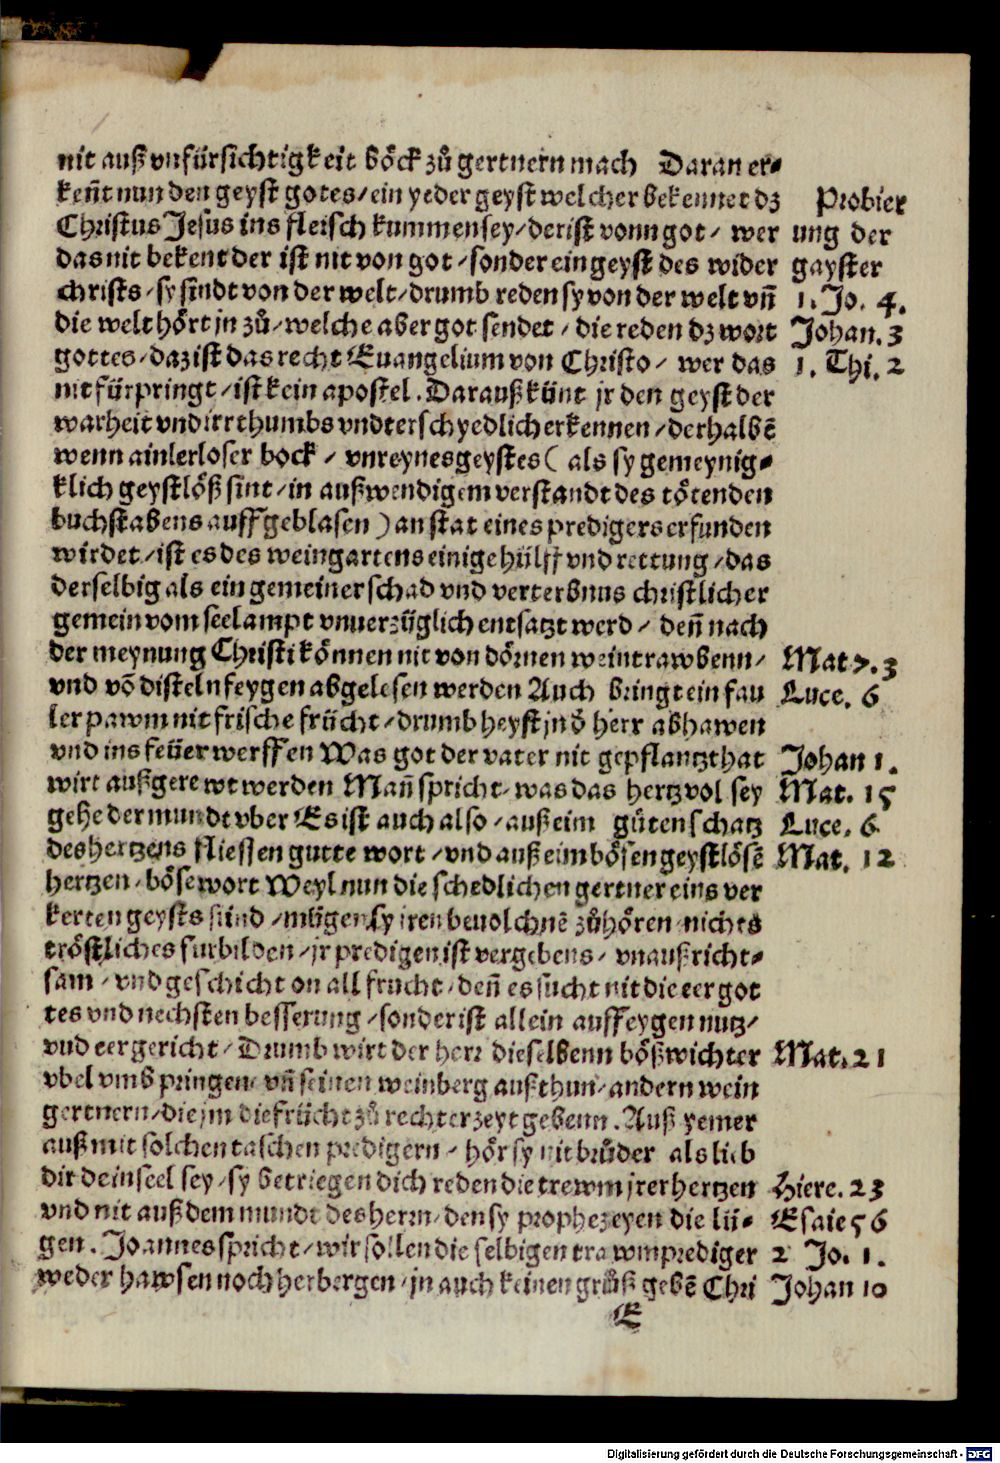 nit auß vnfürsichtigkeit böck zů gertnern mach Daran er⸗
keñt nun den geyst gotes/ ein yeder geyst welcher bekennet dz
Christus Jesus ins fleisch kummen sey/ der ist vonn got/ wer
das nit bekent der ist nit von got/ sonder ein geyst des wider
christs/ sy sindt von der welt/ drumb reden sy von der welt vñ
die welt hört jn zů/ welche aber got sendet/ die reden dz wort
gottes/ daz ist das recht Euangelium von Christo/ wer das
nit fürpringt/ ist kein apostel. Darauß künt jr den geyst der
warheit vnd irrthumbs vndterschyedlich erkennen/ derhalbē
wenn ain lerloser bock/ vnreynes geystes ( als sy gemeynig⸗
klich geystlöß sint/ in außwendigem verstandt des tötenden
buchstabens auffgeblasen ) an stat eines predigers erfunden
wirdet/ ist es des weingartens einige hülff vnd rettung/ das
derselbig als ein gemeiner schad vnd verterbnus christlicher
gemein vom seelampt vnuerzüglich entsatzt werd/ deñ nach
der meynung Christi können nit von dörnen weintrawbenn/
vnd vō disteln feygen abgelesen werden Auch bringt ein fau
ler pawm nit frische frücht/ drumb heyst jn d̄ herr abhawen
vnd ins feüer werffen Was got der vater nit gepflantzt hat
wirt außgerewt werden Mañ spricht/ was das hertz vol sey
gehe der mundt vber Es ist auch also/ auß eim gůten schatz
des hertzens fliessen gutte wort/ vnd auß eim bösen geystlösē
hertzen/ böse wort Weyl nun die schedlichen gertner eins ver
kerten geysts sünd/ mügen sy iren beuolchnē zůhören nichts
tröstliches furbilden/ jr predigen ist vergebens/ vnaußricht⸗
sam/ vnd geschicht on all frucht/ deñ es sůcht nit die eer got
tes vnd nechsten besserung/ sonder ist allein auff eygen nutz/
vnd eer gericht/ Drumb wirt der herr dieselbenn bößwichter
vbel vmb pringen/ vñ seinen weinberg außthun/ andern wein
gertnern/ die jm die frücht zů rechter zeyt gebenn. Auß yemer
auß mit solchen taschen predigern/ hör sy nit brůder als lieb
dir dein seel sey/ sy betriegen dich reden die trewm jrer hertzen
vnd nit auß dem mundt des herrn/ den sy prophezeyen die lü⸗
gen. Joannes spricht/ wir sollen die selbigen trawmprediger
weder hawsen noch herbergen/ jn auch keinen grůß gebē Chri
E
Probier
ung der
gayster
1. Jo. 4.
Johan. 3
1. Thi. 2
Mat 7. 3
Luce. 6
Johan 1.
Mat. 15
Luce. 6
Mat. 12
Mat. 21
Hiere. 23
Esaie 56
2 Jo. 1.
Johan 10
Digitalisierung gefördert durch die Deutsche Forschungsgemeinschaft - DFG